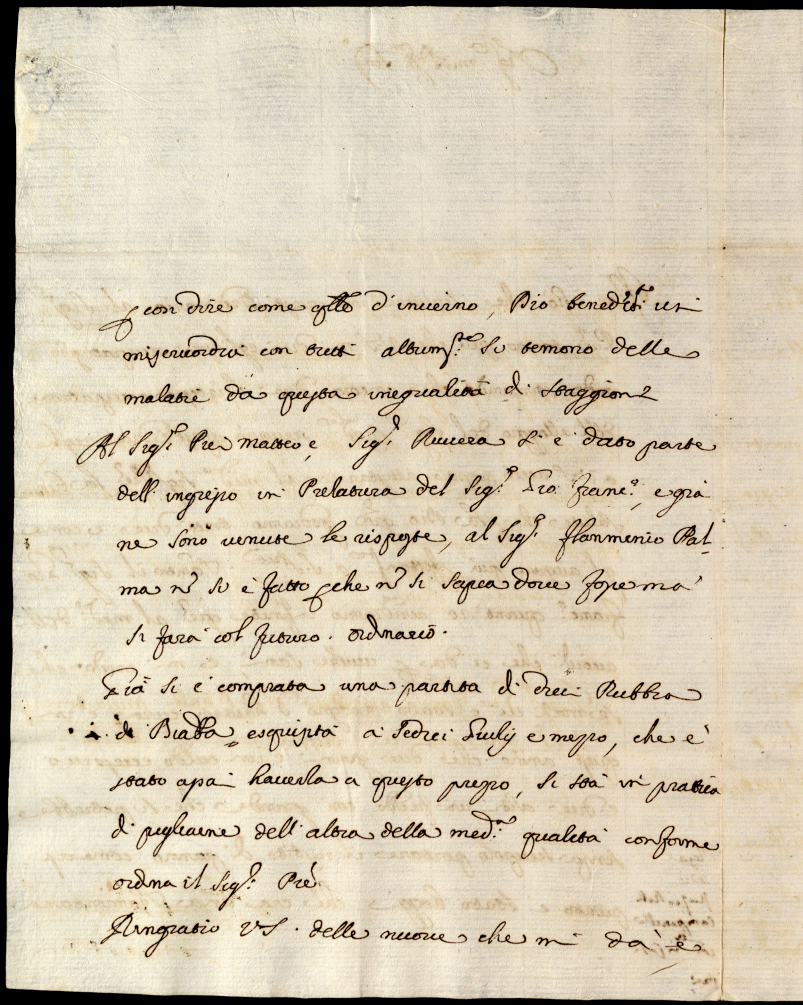 con dire come qllo d'inuierno, Dio benedetto usi
misericordia con tutti altrim.te si temono delle
malatie da questa inegualità di staggione
Al Sig.r Pier Matteo e, Sig.r Riuiera si è dato parte
dell'ingresso in Prelatura del Sig.r Gio: Franc.o, e già
ne sono uenute le risposte, al Sig.r Flamminio Pal-
ma nō si è fatto che nō si sapea doue fosse ma
si farà col futuro. ordinario.
Già si è comprata una partita di dieci Rubbia
di Biada esquisita a sedici Giulij e mezzo, che è
stato assai hauerla a questo prezzo, si stà in pratica
di pigliarne dell'altra della med.ma qualità conforme
ordina il Sig.r Pre
Ringratio V.S. delle nuoue che mi dà è